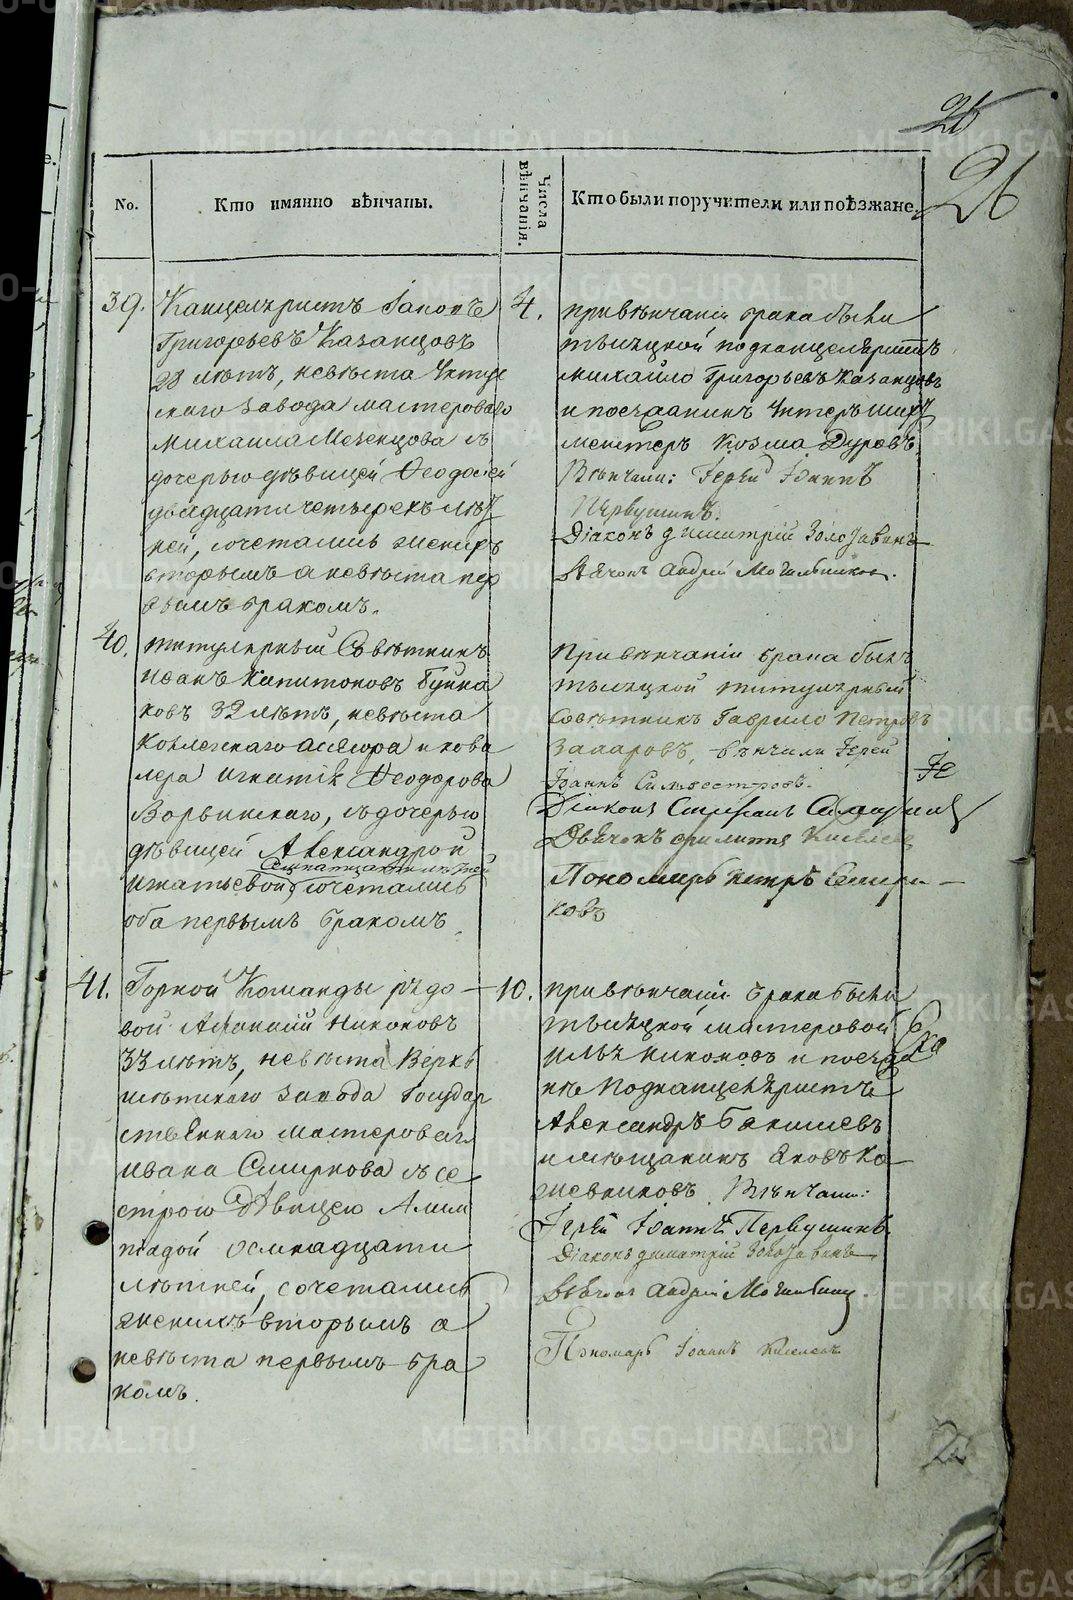 26
26
No.
Кто имянно вѣнчаны.
Числа вѣнчанія.
Кто были поручители или поѣзжане.
39.
Канцеляристъ
Григорьевъ Казанцовъ
28 лѣтъ, невѣста
скаго завода мастероваго
Михаила съ
дочерью дѣвицей Ѳеодосіей
двадцати четырехъ лѣт
ней, сочетались женихъ
вторымъ а невѣста пер
вымъ бракомъ.
4.
При вѣнчаніи брака были
тысяцкой подканцеляристъ
Михайло Григорьевъ Казанцовъ
и поезжанинъ
мейстеръ Козма Дуровъ.
Вѣнчали: Іерей Іоаннъ
Первушинъ.
Діаконъ Димитрій
Дьячокъ Андрей Могильников.
40.
Титулярный Совѣтникъ
Иванъ Капитоновъ
ковъ 32 лѣтъ, невѣста
Коллежскаго Асесора и кова
лера Игнатія Ѳеодорова
съ дочерью
дѣвицей Александрой
Игнатьевой, сочетались
оба первымъ бракомъ.
При вѣнчаніи брака былъ
тысяцкой титулярный
совѣтникъ Гаврило Петровъ
Захаровъ, вѣнчали Іерей
Іоаннъ Сильвестровъ.
Діаконъ Стефанъ
Дьячокъ
Пономарь Петръ
ковъ
41.
Горной Команды рядо
вой Афанасій Никоновъ
33 лѣтъ, невѣста Верхъ
исетскаго завода Государ
ственнаго мастероваго
Ивана Смирнова съ се
строю дѣвицею
осмнадцати
лѣтней, сочетались
женихъ вторымъ а
невѣста первымъ бра
комъ.
10.
При вѣнчаніи брака были
тысяцкой мастеровой
Илья Никоновъ и поезжа
не Подканцеляристъ
Александръ
и мѣщанинъ Яковъ Ко
жевниковъ. Вѣнчали:
Іерей Іоаннъ Первушинъ.
Діаконъ Димитрій
Дьячокъ Андрей
Пономарь Іоаннъ Киселевъ
METRIKI.GASO-URAL.RU